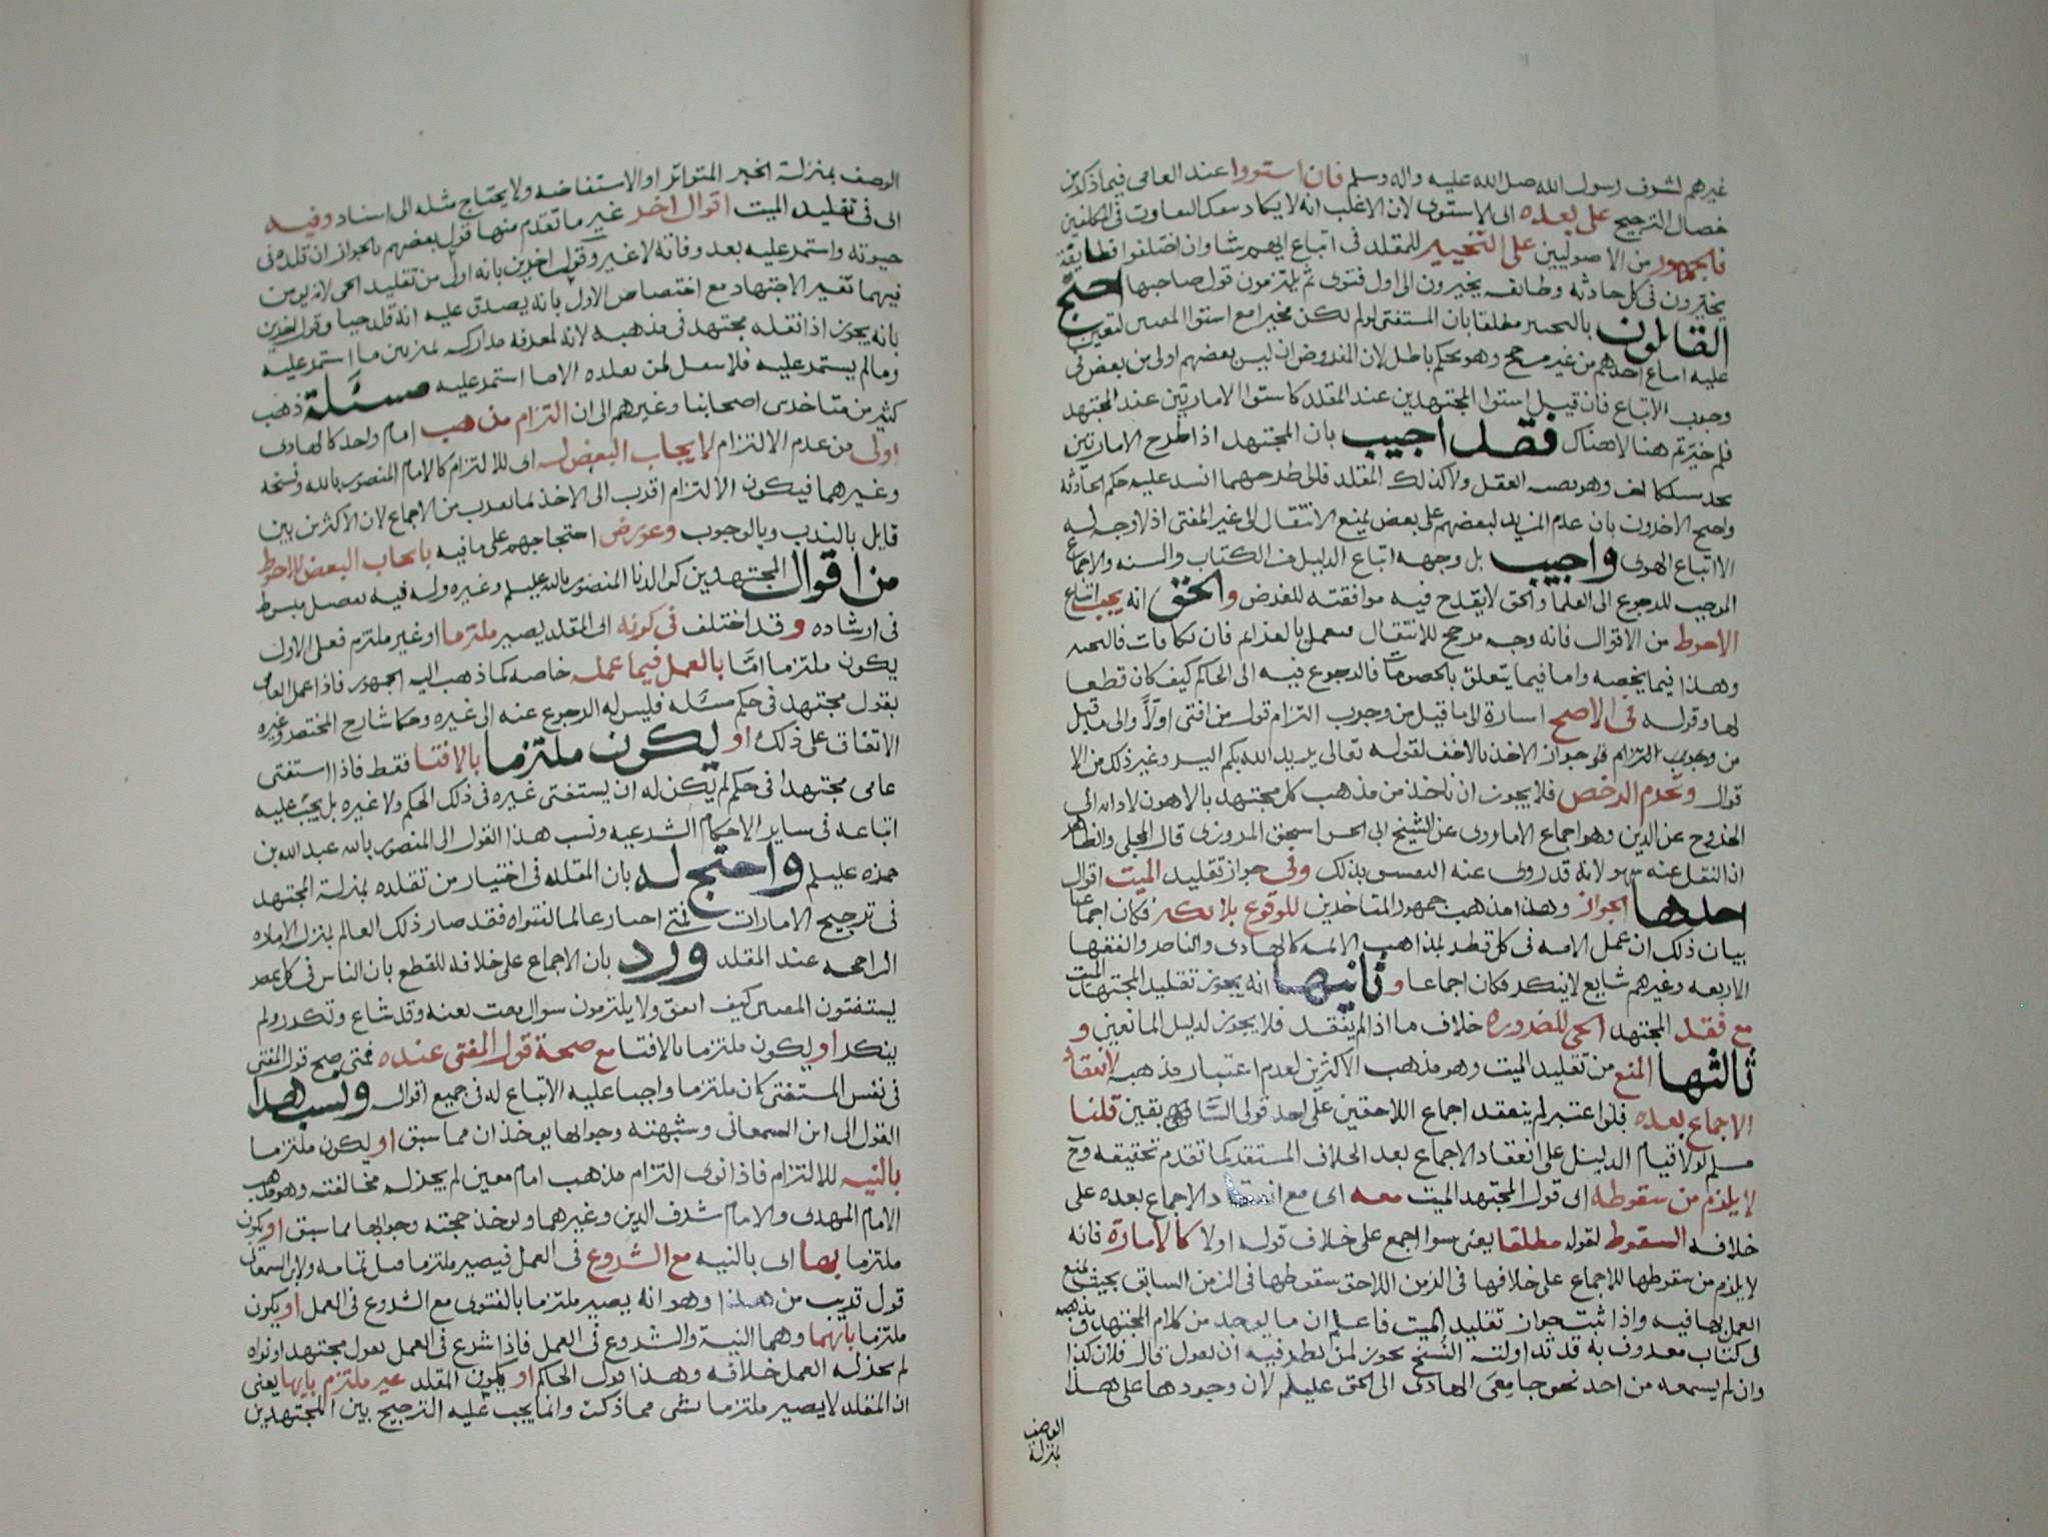 غيرهم لشرف رسول الله صلى الله عليه واله وسلم فان استووا عند العامي فيما ذكر من
خصال الترجيح على بعده الى الاستوى لان الاغلب انه لا يكاد التفاوت في
فالجمهور من الاصوليين على التخيير للمقلد في اتباع ايهم شا وان اختلفوا فطايفة
يخيرون في كل حادثه وطايفه يخيرون الى اول فتوى ثم يلتزمون قول صاحبها احتج
القائلون بالتخيير مطلقا بان المستفتي لو لم يكن مخيرا مع استوا المفتيين لتعين
عليه اتباع احدهم من غير مرجح وهو تحكم باطل لان المفروض ان ليس بعضهم اولى من بعض في
وجوب الاتباع فان قيل استوا المجتهدين عند المقلد كاستوا الامارتين عند المجتهد
فلم خيرتم هنا لا هناك فقد اجيب بان المجتهد اذا اطرح الامارتين
وهو العقل ولا كذلك المقلد فان اطرحهما انسد عليه حكم الحادثه
واحتج الاخرون بان عدم المزيد لبعضهم على بعض يمنع الانتقال الى غير المفتي اذ لا وجه له
الا اتباع الهوى واجيب بل وجهه اتباع الدليل من الكتاب والسنه والاجماع
الموجب للرجوع الى العلما والحق لا يقدح فيه موافقته للغرض والحق انه يجب اتباع
الاحوط من الاقوال فانه وجه مرجح للانتقال فيعمل بالعزايم فان تكافات فالتخيير
وهذا فيما يخصه واما فيما يتعلق بالخصومات فالرجوع فيه الى الحاكم كيف كان قطعا
لها وقوله في الاصح اشارة الى ما قيل من وجوب التزام قول من افتى اولا والى ما قيل
من وجوب التزام فو جواز الاخذ بالاخف لقوله تعالى يريد الله بكم اليسر وغير ذلك من الا
قوال وتحرم الرخص فلا يجوز ان ناخذ من مذهب كل مجتهد بالاهون لادائه الى
الخروج عن الدين وهو اجماع الا ما روى عن الشيخ ابي اسحق المروزي قال المحلي والظاهر
ان النقل عنه سهو لانه قد روى عنه التفسيق بذلك وفي جواز تقليد الميت اقوال
احدها الجواز وهذا مذهب جمهور المتاخرين للوقوع بلا نكير فكان اجماعا
بيان ذلك ان عمل الامه في كل قطر لمذاهب الائمه كالهادي والناصر والفقها
الاربعه وغيرهم شايع لا ينكر فكان اجماعا وثانيها انه يجوز تقليد المجتهد الميت
مع فقد المجتهد الحي للضروره خلاف ما اذا لم يفقد فلا يجوز لدليل المانعين و
ثالثها المنع من تقليد الميت وهو مذهب الاكثرين لعدم اعتبار مذهبه لانعقاد
الاجماع بعده فلو اعتبر لم ينعقد اجماع اللاحقين على احد قولي السابقين قلنا
مسلم لولا قيام الدليل على انعقاد الاجماع بعد الخلاف المستقر كما تقدم تحقيقه وح
لا يلزم من سقوطه الى قول المجتهد الميت معه اى مع انعقاد الاجماع بعده على
خلافه السقوط لقوله مطلقا يعني سوا اجمع على خلاف قوله او لا كالامارة فانه
لا يلزم من سقوطها للاجماع على خلافها في الزمن اللاحق سقوطها في الزمن السابق بحيث يمنع
العمل بها فيه واذا ثبت جواز تقليد الميت فاعلم ان ما يوجد من كلام المجتهد ومذهبه
في كتاب معروف به قد تداولته النسخ يجوز لمن نظر فيه ان يقول قال فلان كذا
وان لم يسمعه من احد نحو جامعي الهادي الى الحق عليلم لان وجودها على هذا
الوصف
بمنزلة
الوصف بمنزلة الخبر المتواتر او الاستفاضه ولا يحتاج مثله الى اسناد وفيه
اى في تقليد الميت اقوال اخر غير ما تقدم منها قول بعضهم بالجواز ان قلده في
حيوته واستمر عليه بعد وفاته لا غير وقول اخرين بانه اولى من تقليد الحي لانه يومن
فيهما تغير الاجتهاد مع اختصاص الاول بانه يصدق عليه انه قلد حيا وقول اخرين
بانه يجوز اذا نقله مجتهد في مذهبه لانه لمعرفه مداركه يميز بين ما استمر عليه
وما لم يستمر عليه فلا ينقل لمن يقلده الا ما استمر عليه مسئلة ذهب
كثير من متاخري اصحابنا وغيرهم الى ان التزام مذهب امام واحد كالهادي
اولى من عدم الالتزام لايجاب البعض له اى للالتزام كالامام المنصور بالله وشيخه
وغيرهما فيكون الالتزام اقرب الى الاخذ بما يقرب من الاجماع لان الاكثر من بين
قايل بالندب وبالوجوب وعورض احتجاجهم على ما فيه بايجاب البعض للاحوط
من اقوال المجتهدين كوالدنا المنصور بالله عليلم وغيره وله فيه تفصيل مبسوط
في ارشاده وقد اختلف في كونه اى المقلد يصير ملتزما او غير ملتزم فعلى الاول
يكون ملتزما اما بالعمل فيما عمله خاصه كما ذهب اليه الجمهور فاذا عمل العامي
بقول مجتهد في حكم مسئله فليس له الرجوع عنه الى غيره وحكا شارح المختصر وغيره
الاتفاق على ذلك او يكون ملتزما بالافتا فقط فاذا استفتى
عامي مجتهدا في حكم لم يكن له ان يستفتي غيره في ذلك الحكم ولا غيره بل يجب عليه
اتباعه في ساير الاحكام الشرعيه ونسب هذا القول الى المنصور بالله عبد الله بن
حمزه عليلم واحتج له بان المقلد في اختيار من تقلده بمنزلة المجتهد
في ترجيح الامارات فمتى اختار عالما لفتواه فقد صار ذلك العالم بمنزله الاماره
الراجحه عند المقلد ورد بان الاجماع على خلافه للقطع بان الناس في كل عصر
يستفتون المفتين كيف اتفق ولا يلتزمون سوال مفت بعينه وقد شاع وتكرر ولم
ينكر او يكون ملتزما بالافتا مع صحة قول المفتي عنده فمتى صح قول المفتي
في نفس المستفتي كان ملتزما واجبا عليه الاتباع له في جميع اقواله ونسب هذا
القول الى ابن السمعاني وشبهته وجوابها يوخذان مما سبق او يكون ملتزما
بالنيه للالتزام فاذا نوى التزام مذهب امام معين لم يجز له مخالفته وهو مذهب
الامام المهدي والامام شرف الدين وغيرهما ويوخذ حجته وجوابها مما سبق او يكون
ملتزما بها اى بالنيه مع الشروع في العمل فيصير ملتزما قبل تمامه ولابن السمعاني
قول قريب من هذا وهو انه يصير ملتزما بالفتوى مع الشروع في العمل او يكون
ملتزما بايهما وهما النية والشروع في العمل فاذا شرع في العمل بقول مجتهد او نواه
لم يجز له العمل خلافه وهذا قول الحاكم او يكون المقلد غير ملتزم بايها يعني
ان المقلد لا يصير ملتزما بشي مما ذكر وانما يجب عليه الترجيح بين المجتهدين